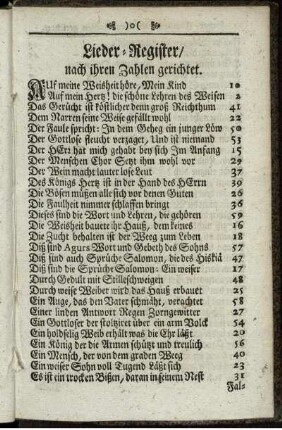 )o(
Lieder-Register/
nach ihren Zahlen gerichtet.
AUf meine Weisheit höre, Mein Kind 10
Auf mein Hertz! die schöne Lehren des Weisen 2
Das Gerücht ist köstlicher denn groß Reichthum 41
Dem Narren seine Weise gefällt wohl 22
Der Faule spricht: In dem Geheg ein junger Löw 50
Der Gottlose fleucht verzaget, Und ist niemand 51
Der HErr hat mich gehabt bey sich Im Anfang 15
Der Menschen Chor Setzt ihm wohl vor 29
Der Wein macht lauter lose Leut 37
Des Königs Hertz ist in der Hand des HErrn 39
Die Bösen müssen alle sich vor denen Guten 26
Die Faulheit nimmer schlaffen bringt 36
Dieses sind die Wort und Lehren, die gehören 59
Die Weisheit bauete ihr Hauß, dem keines 16
Die Zucht behalten ist der Weeg zum Leben 18
Diß sind Agurs Wort und Gebeth des Sohns 57
Diß sind auch Sprüche Salomon, die des Hiskiä 47
Diß sind die Sprüche Salomon: Ein weiser 17
Durch Gedult mit Stilleschweigen 48
Durch weise Weiber wird das Hauß erbaut 25
Ein Auge, das den Vater schmäht, verachtet 58
Einer linden Antwort Regen Zorngewitter 27
Ein Gottloser der stoltziret über ein arm Volck 54
Ein holdselig Weib erhält was die Ehr läßt 20
Ein König der die Armen schützt und treulich 56
Ein Mensch, der von dem graden Weeg 40
Ein weiser Sohn voll Tugend Läßt sich 23
Es ist ein trocken Bißen, daran in seinem Nest 31
Fal-